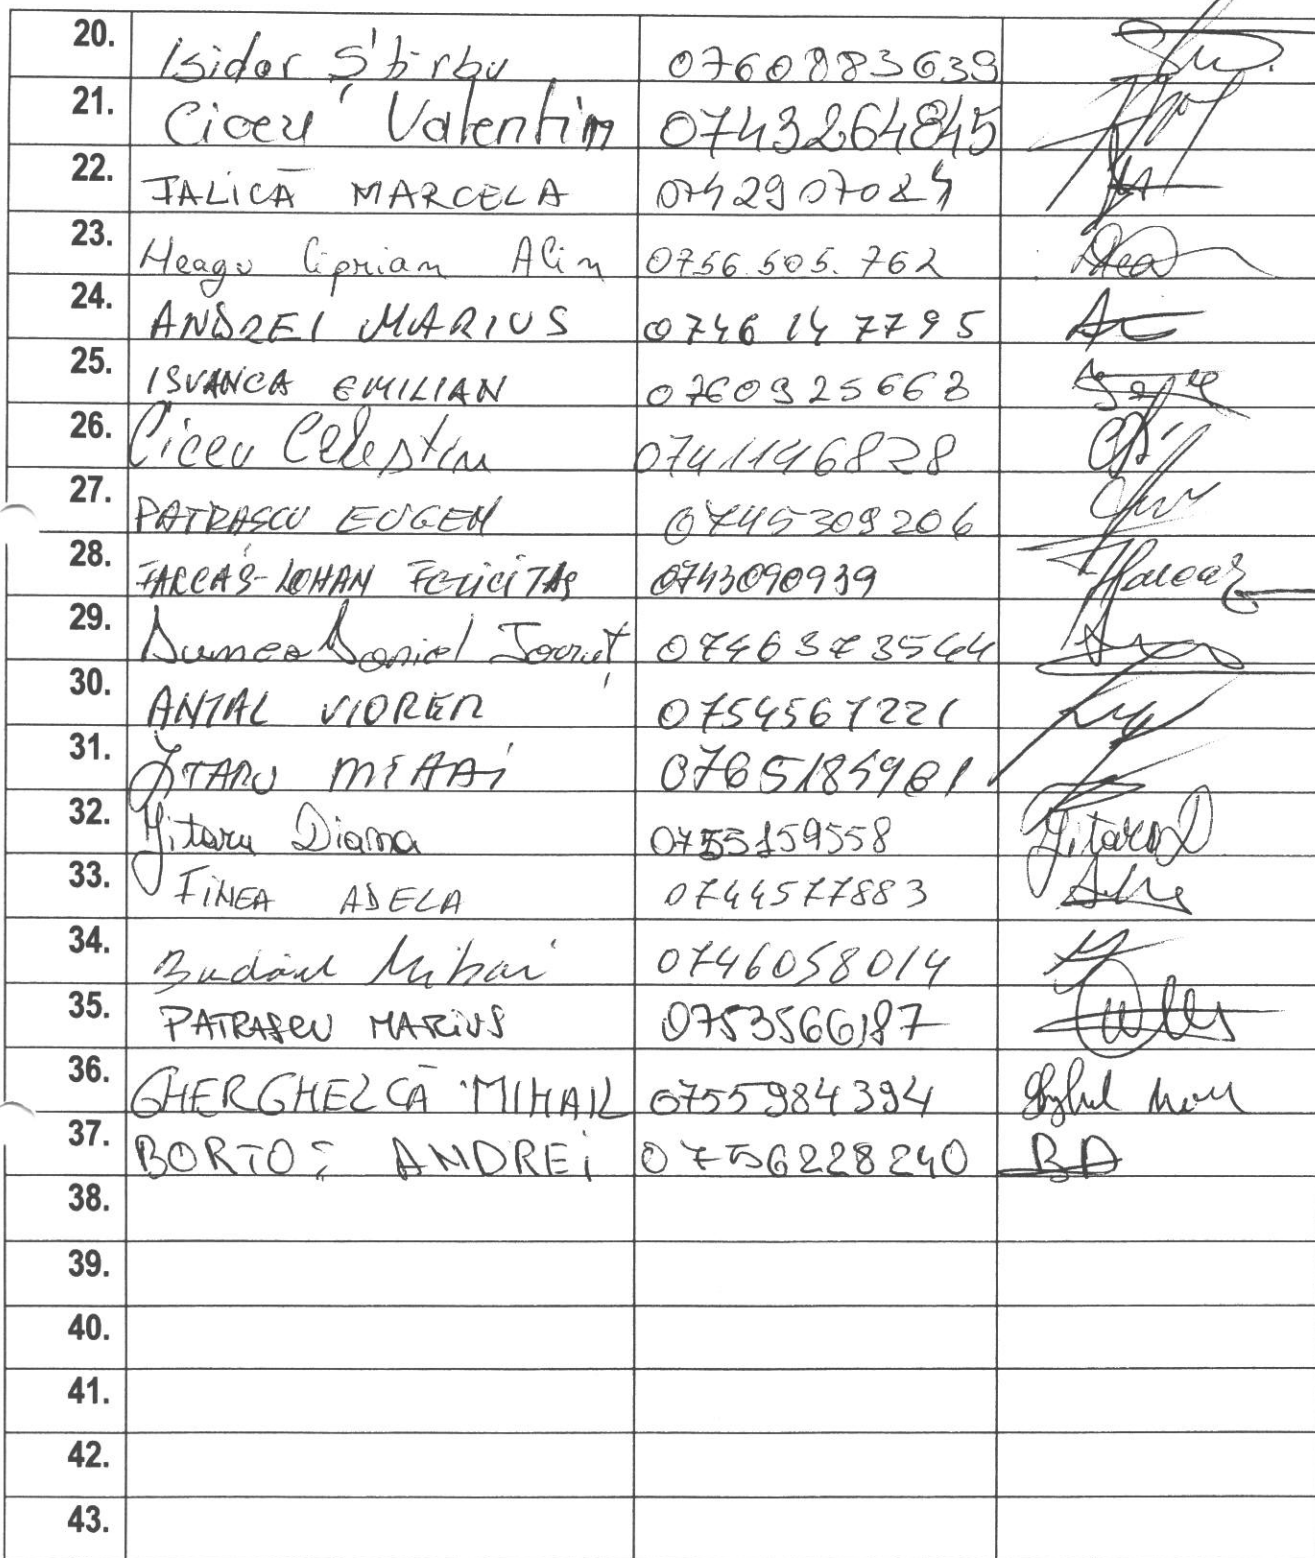 20. Isidor Știrbu 0760883639
21. Ciceu Valentin 0743264845
22. JALICĂ MARCELA 0742907084
23. Neagu Ciprian Alin 0756.505.762
24. ANDREI MARIUS 0746147795
25. ISVANCA EMILIAN 0760925663
26. Ciceu Celestin 0741146828
27. PATRASCU EUGEN 0745309206
28. FARCAȘ-LOHAN FELICITAS 0743090939
29. Daniel Ionuț
30. ANTAL VIOREL 0754561221
31. JITARU MIHAI
32. Jitaru Diana 0753159558 Jitaru D
33. TINEA ADELA 0744577883
34. Mihai 0746058014
35. PATRASCU MARIUS 0753566187
36. GHERGHELCĂ MIHAIL 0755984394
37. BORTOȘ ANDREI 0756228240 BA
38.
39.
40.
41.
42.
43.